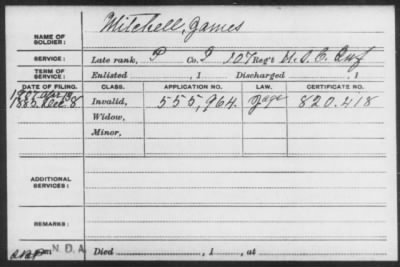 Mitchell, James
NAME OF
SOLDIER:
SERVICE: Late rank, P Co. I 107 Reg't U.S.C. Inf
TERM OF
SERVICE: Enlisted , 1 Discharged , 1
DATE OF FILING. CLASS. APPLICATION NO. LAW. CERTIFICATE NO.
1885 Dec. 8 Invalid, 555,964 820.418
Widow,
Minor,
ADDITIONAL
SERVICES:
REMARKS:
N.D.A. Died , 1 , at